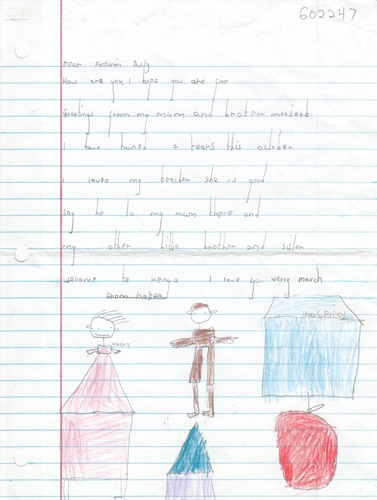 602247
Dear
How are you I hope you are fine
Greetings from my mum and brother
I have turned 8 years this october
I loves my teacher she is good
say hi to my mum there and
my other little brother and sister
welcome to kenya I love you very march
From
Hospital